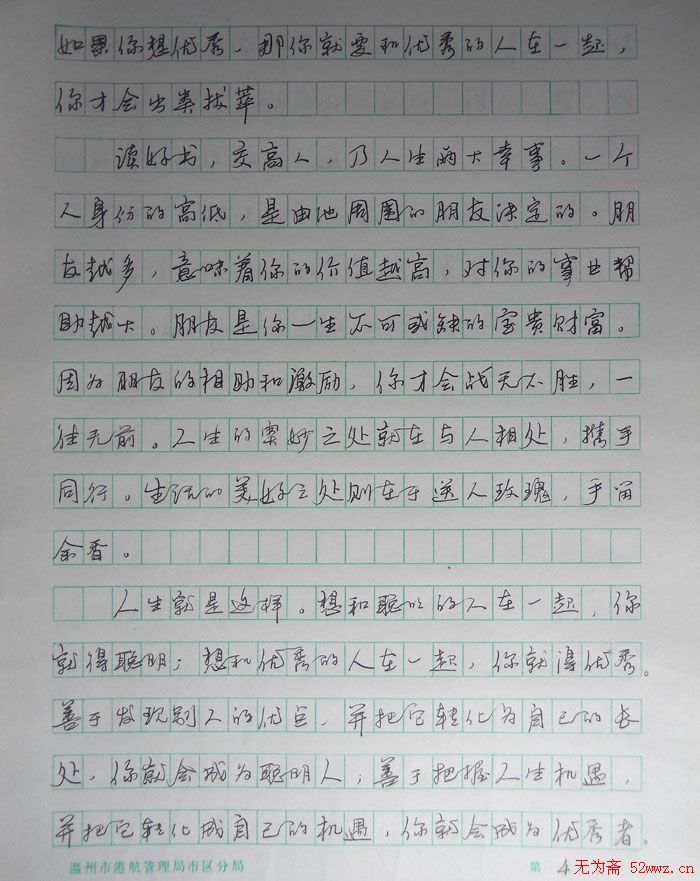 如果你想优秀，那你就要和优秀的人在一起，
你才会出类拔萃。
读好书，交高人，乃人生两大幸事。一个
人身份的高低，是由他周围的朋友决定的。朋
友越多，意味着你的价值越高，对你的事业帮
助越大。朋友是你一生不可或缺的宝贵财富。
因为朋友的相助和激励，你才会战无不胜，一
往无前。人生的奥妙之处就在与人相处，携手
同行。生活的美好之处则在于送人玫瑰，手留
余香。
人生就是这样。想和聪明的人在一起，你
就得聪明；想和优秀的人在一起，你就得优秀。
善于发现别人的优点，并把它转化为自己的长
处，你就会成为聪明人；善于把握人生机遇，
并把它转化成自己的机遇，你就会成为优秀者。
温州市港航管理局市区分局 第 4
无为斋 52wwz.cn